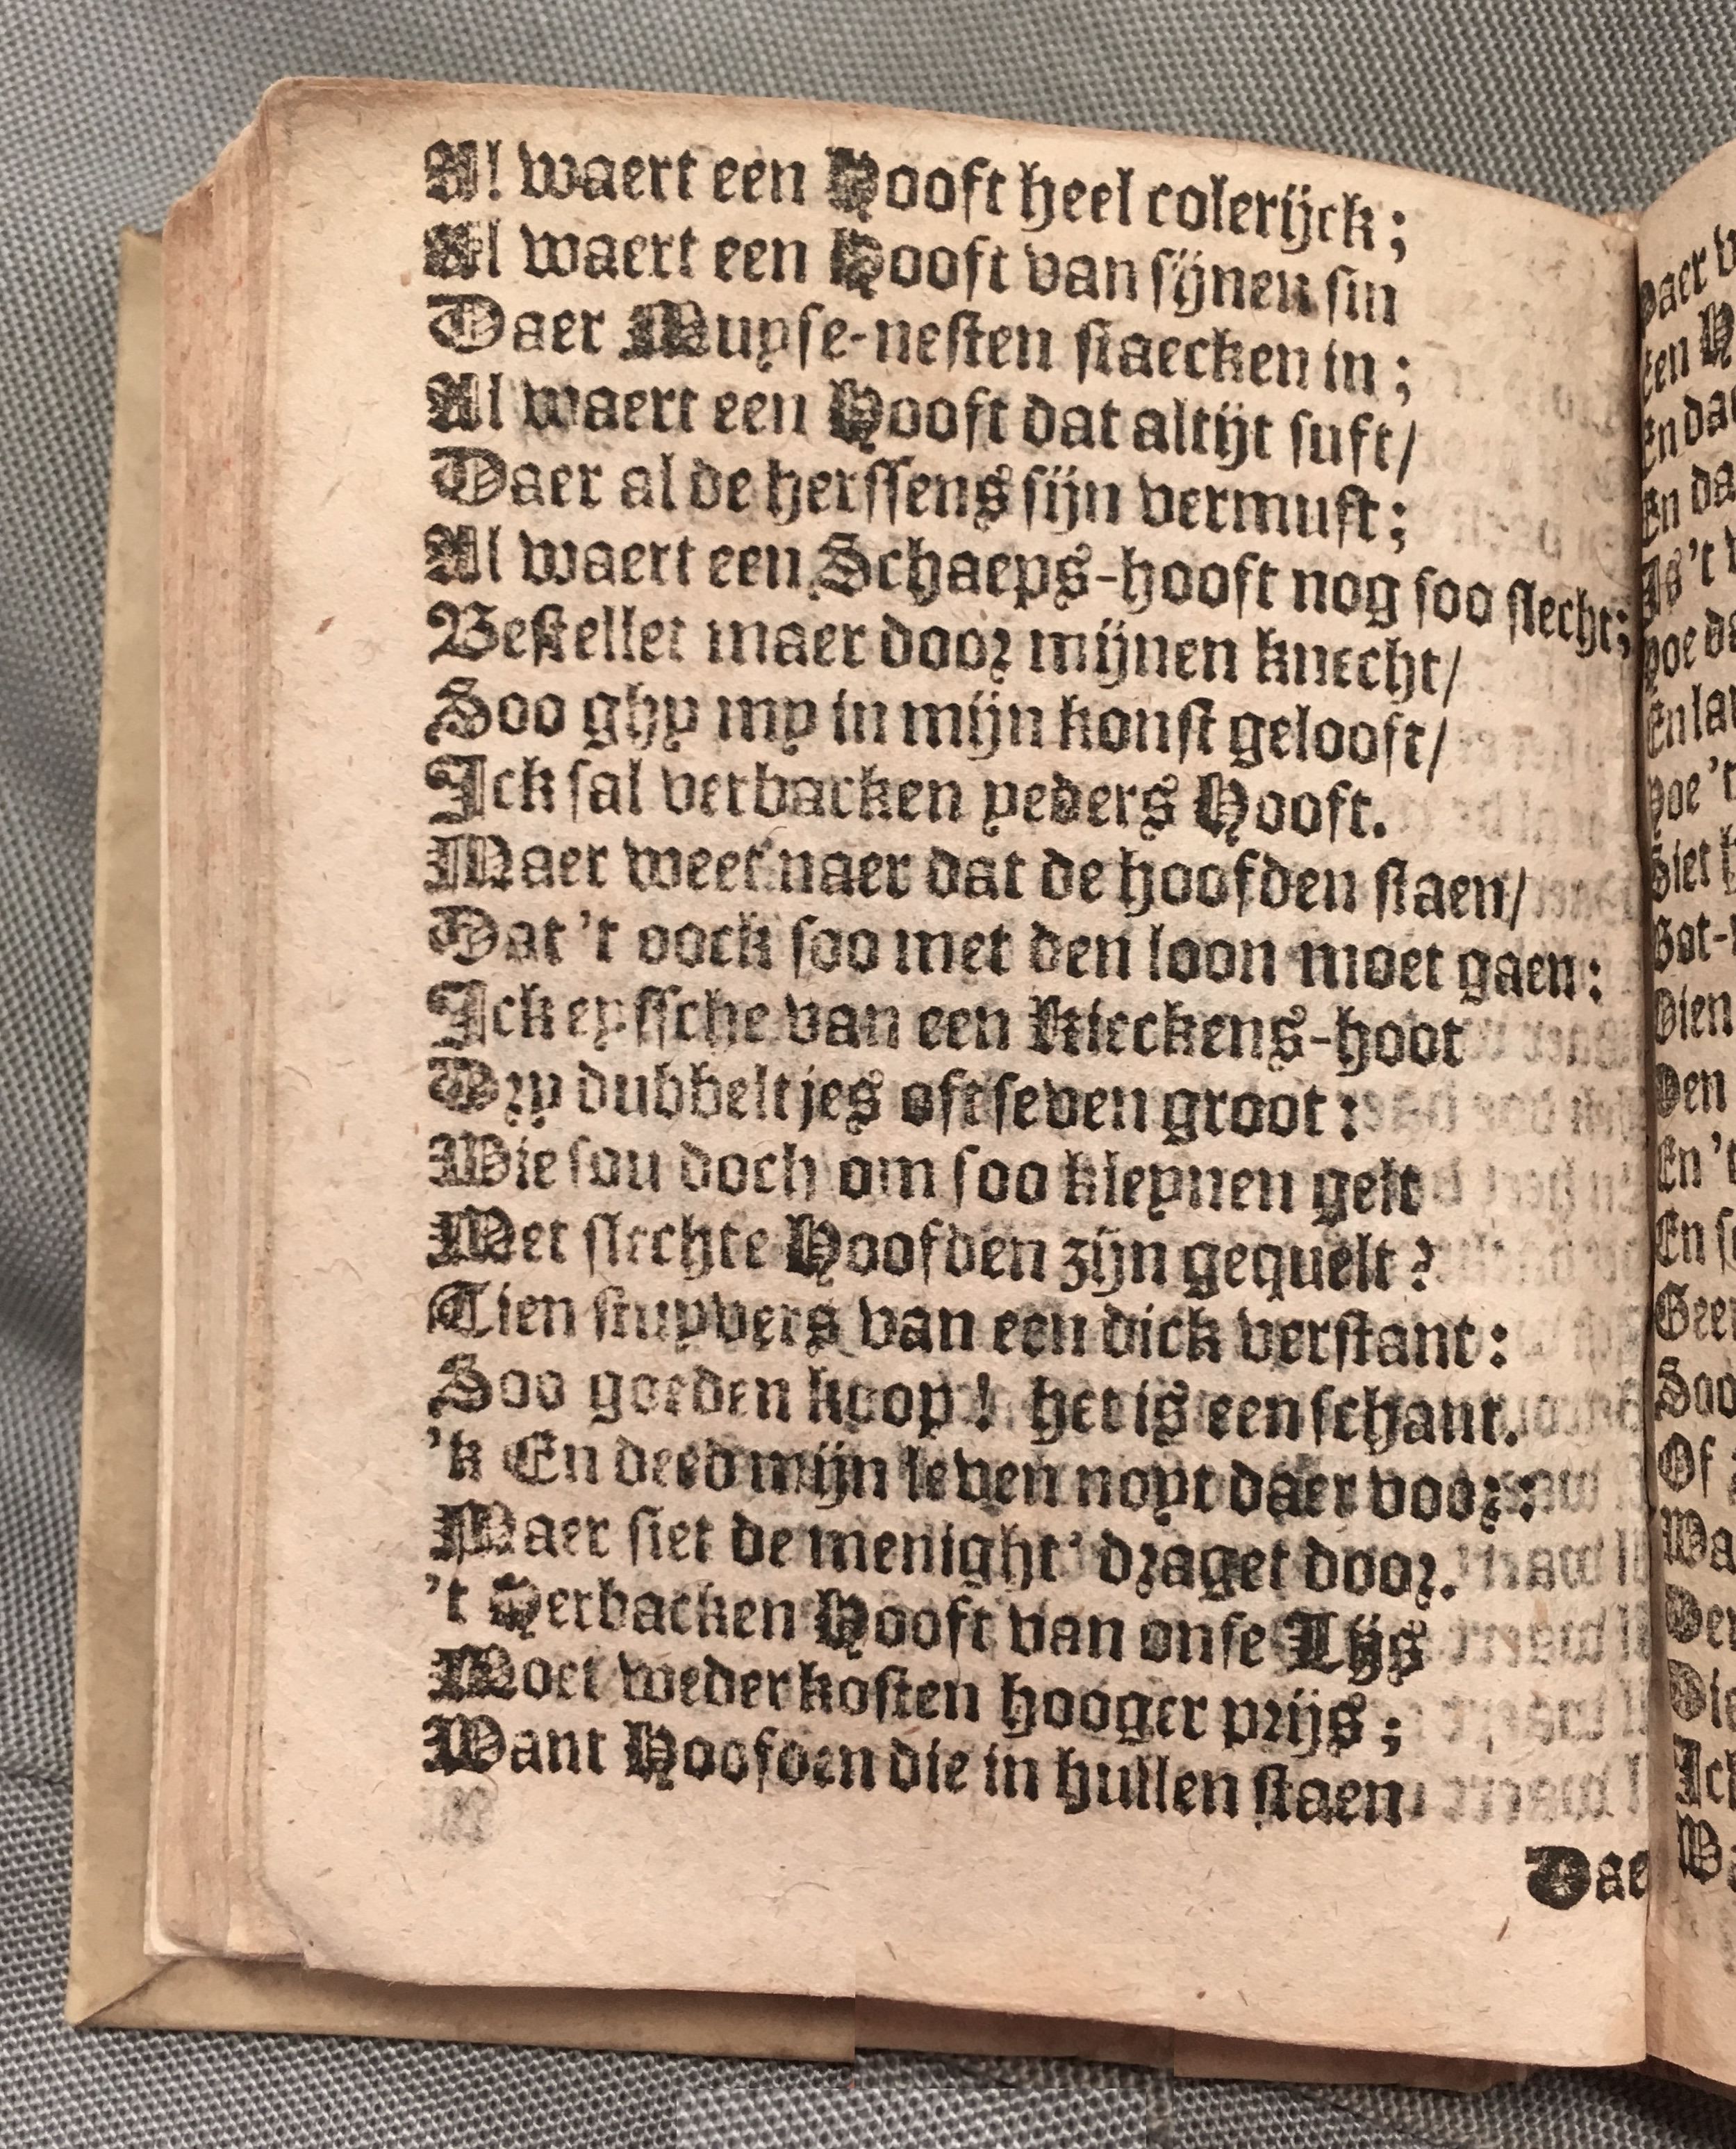 Al waert een Hooft heel colerijck;
Al waert een Hooft van sijnen sin
Daer Muyse-nesten staecken in;
Al waert een Hooft dat altijt suft/
Daer al de herssens sijn vermuft;
Al waert een Schaeps-hooft nog soo slecht;
Bestellet maer door mijnen knecht/
Soo ghy my in mijn konst gelooft/
Ick sal verbacken yeders Hooft.
Maer weet naer dat de hoofden staen/
Dat 't oock soo met den loon moet gaen:
Ick eyssche van een Kieckens-hoot
Dry dubbeltjes oft seven groot:
Wie sou doch om soo kleynen gelt
Met slechte Hoofden zijn gequelt?
Tien stuyvers van een dick verstant:
Soo goeden koop! het is een schant.
'k En deed mijn leven noyt daer voor:
Maer siet de menight' draget door.
't Herbacken Hooft van onse Lijs
Moet weder kosten hooger prijs;
Want Hoofden die in hullen staen
Dae
Daer
Een
En
En
Is 't
Hoe
En
Hoe 't
Siet
Sot-
Dien
Den
En 't
En
Of